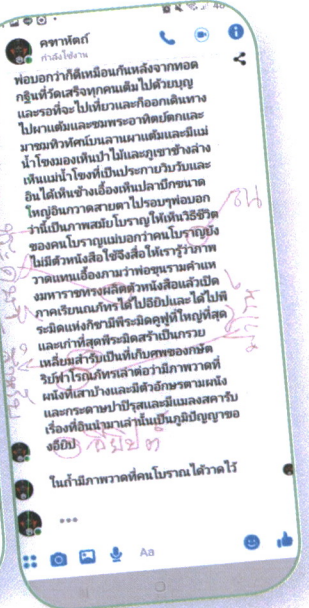 คฑาหัตถ์
กำลังใช้งาน
พ่อบอกว่าก็ดีเหมือนกันหลังจากทอด
กฐินที่วัดเสร็จทุกคนเต็มไปด้วยบุญ
และรอที่จะไปเที่ยวและก็ออกเดินทาง
ไปผาแต้มและชมพระอาทิตย์ตกและ
มาชมทิวทัศน์บนลานผาแต้มและมีแม่
น้ำโขงมองเห็นป่าไม้และภูเขาข้างล่าง
เห็นแม่น้ำโขงที่เป็นประกายวิบวับและ
อินได้เห็นช้างเอื้องเห็นปลาบึกขนาด
ใหญ่อินกวาดสายตาไปรอบๆพ่อบอก
ว่านี้เป็นภาพสมัยโบราณให้เห็นวิธีชีวิต
ของคนโบราญแม่บอกว่าคนโบราญยัง
ไม่มีตัวหนังสือใช้จึงสื่อให้เรารู้ว่าภาพ
วาดแทนเอื้องถามว่าพ่อขุนรามคำแห
งมหาราชทรงผลิตตัวหนังสือแล้วเปิด
ภาคเรียนณภัทรได้ไปอียิปและได้ไปพี
ระมิดแห่งกีซามีพีระมิดคูฟูที่ใหญ่ที่สุด
และเก่าที่สุดพีระมิดสร้าเป็นกรวย
เหลี่ยมสำรับเป็นที่เก็บศพของกษัต
ริย์ฟาโรณภัทรเล่าต่อว่ามีภาพวาดที่
ผนังที่เสาบ้างและมีตัวอักษรตามผนัง
และกระดาษปาปิรุสและมีแมลงสคารับ
เรื่องที่อินนำมาเล่านั้นเป็นภูมิปัญญาขอ
งอียิป
อียิปต์
ในถ้ำมีภาพวาดที่คนโบราณได้วาดไว้
Aa